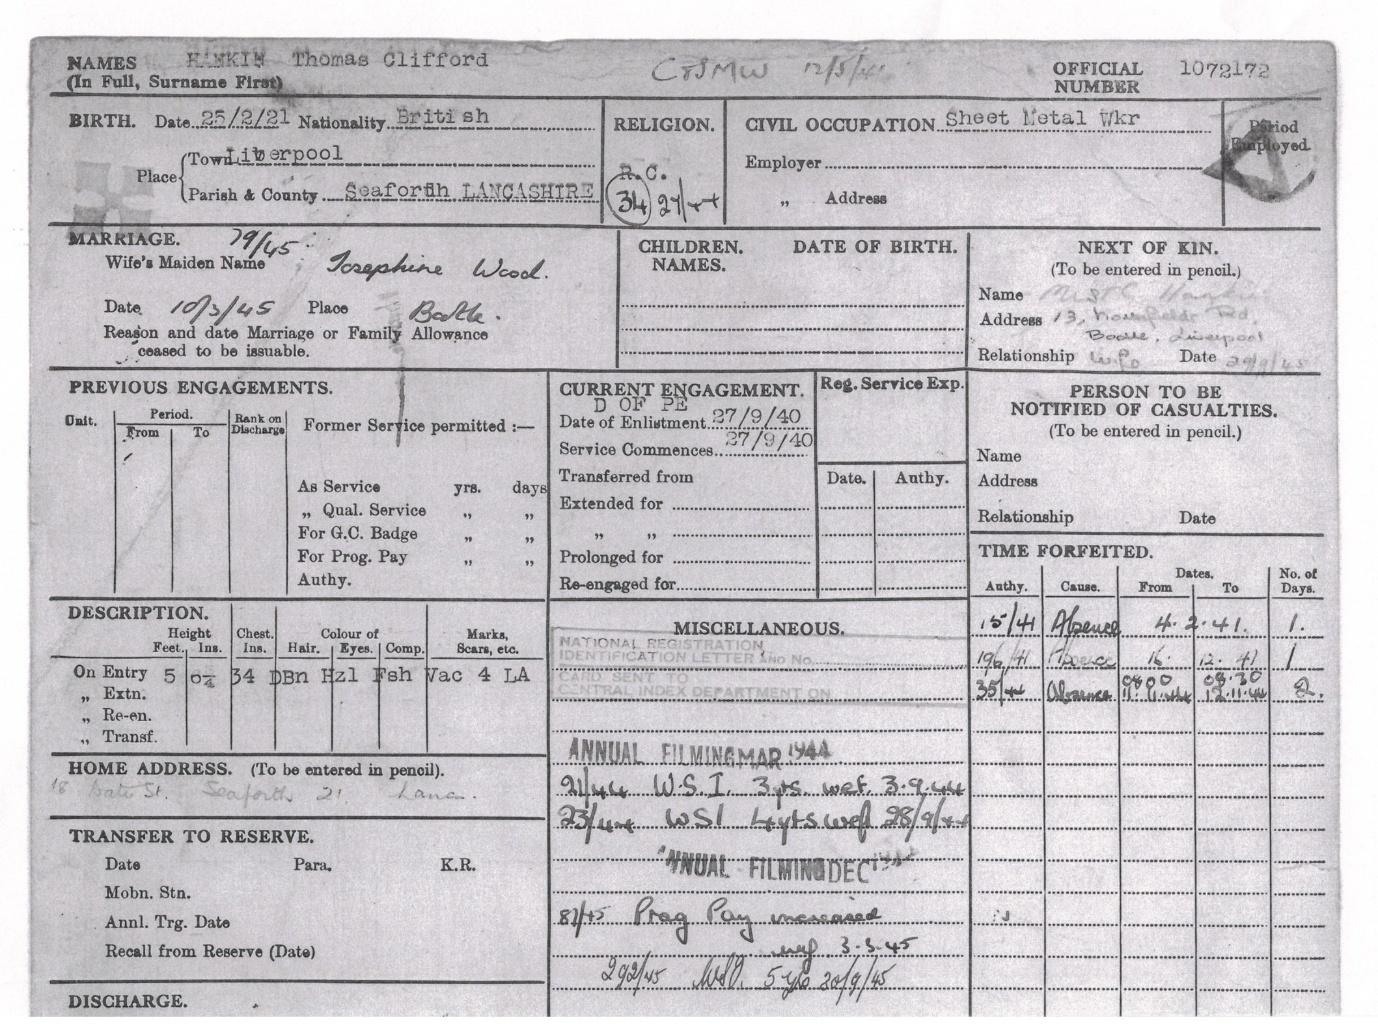 NAMES HANKIN Thomas Clifford
(In Full, Surname First)
12/5/41
OFFICIAL NUMBER 1072172
BIRTH. Date 25/2/21 Nationality British
Place Town Liverpool
Parish & County Seaforth LANCASHIRE
RELIGION.
R.C.
34 27/44
CIVIL OCCUPATION Sheet Metal Wkr
Employer
„ Address
Period Employed
MARRIAGE. 79/45
Wife's Maiden Name Josephine Wood.
Date 10/3/45 Place Bootle.
Reason and date Marriage or Family Allowance
ceased to be issuable.
CHILDREN. DATE OF BIRTH.
NAMES.
NEXT OF KIN.
(To be entered in pencil.)
Name Hankin
Address 13, Rd,
Bootle, Liverpool
Relationship Wife Date 29/9/45
PREVIOUS ENGAGEMENTS.
Unit. Period. From To Rank on Discharge
Former Service permitted :—
As Service yrs. days
„ Qual. Service „ „
For G.C. Badge „ „
For Prog. Pay „ „
Authy.
CURRENT ENGAGEMENT.
D OF PE
Date of Enlistment 27/9/40
Service Commences 27/9/40
Transferred from
Extended for
„ „
Prolonged for
Re-engaged for
Reg. Service Exp.
Date. Authy.
PERSON TO BE
NOTIFIED OF CASUALTIES.
(To be entered in pencil.)
Name
Address
Relationship Date
TIME FORFEITED.
Authy. Cause. Dates. From To No. of Days.
15/41 Absence 4.2.41. 1.
196/41 Absence 16. 12. 41 1
0800 08.30
35/44 Absence 11.11.44 12.11.44 2.
DESCRIPTION.
Height Feet. Ins. Chest. Ins. Colour of Hair. Eyes. Comp. Marks, Scars, etc.
On Entry 5 34 DBn Hzl Fsh Vac 4 LA
„ Extn.
„ Re-en.
„ Transf.
MISCELLANEOUS.
NATIONAL REGISTRATION
IDENTIFICATION LETTER AND No.
CARD SENT TO
CENTRAL INDEX DEPARTMENT ON
ANNUAL FILMING MAR 1944
21/44 W.S.I. 3yrs. wef. 3.9.44
23/44 WSI 4yrs wef 28/9/44
ANNUAL FILMING DEC 1944
81/45 Prog Pay increased
wef 3.3.45
292/45 WSI. 5 yrs 20/9/45
HOME ADDRESS. (To be entered in pencil).
18 Gate St. Seaforth 21 Lanc.
TRANSFER TO RESERVE.
Date Para. K.R.
Mobn. Stn.
Annl. Trg. Date
Recall from Reserve (Date)
DISCHARGE.